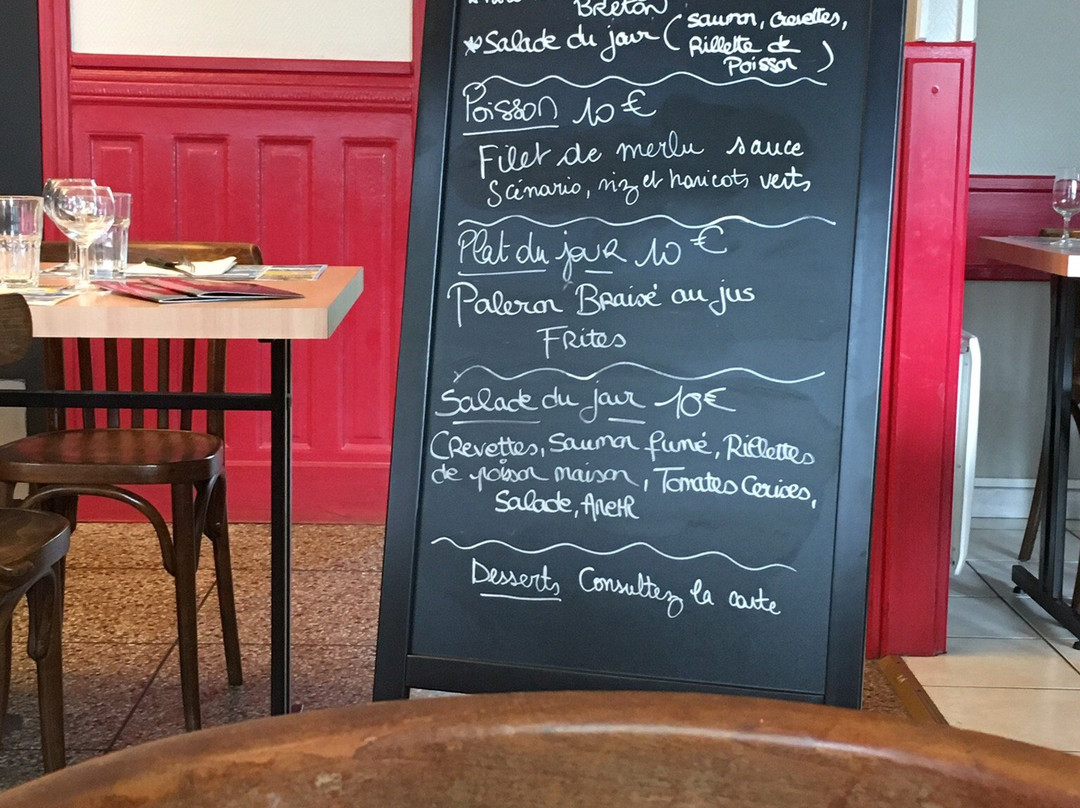 Breton
*Salade du jour (saumon, crevettes,
Rillette de
Poisson)
Poisson 10 €
Filet de merlu sauce
Scénario, riz et haricots verts
Plat du jour 10 €
Paleron Braisé au jus
Frites
Salade du jour 10€
Crevettes, Saumon fumé, Rillettes
de poisson maison, Tomates Cerises,
Salade, Aneth
Desserts Consultez la carte